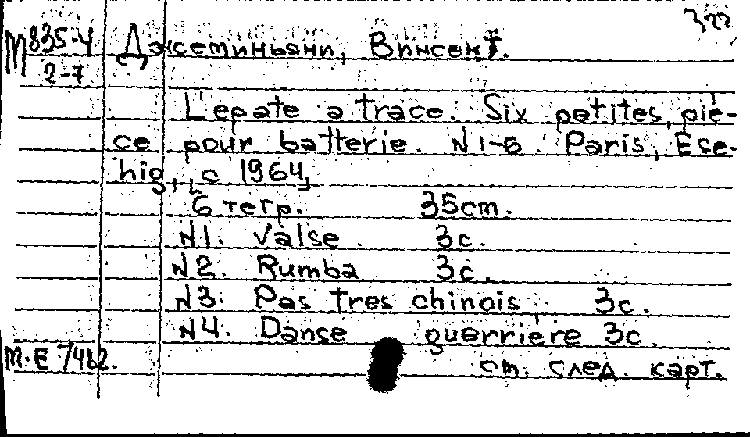 M 835-4
2-7
322
Джеминьяни, Винсент.
L'epate a trace. Six petites, piè-
ce pour batterie. N1-6. Paris, Ese-
hig, [c 1964]
6 тетр. 35cm.
N1. Valse 3c.
N2. Rumba 3c.
N3. Pas tres chinois 3c.
N4. Danse guerriere 3c.
M.E 7482. см. след. карт.